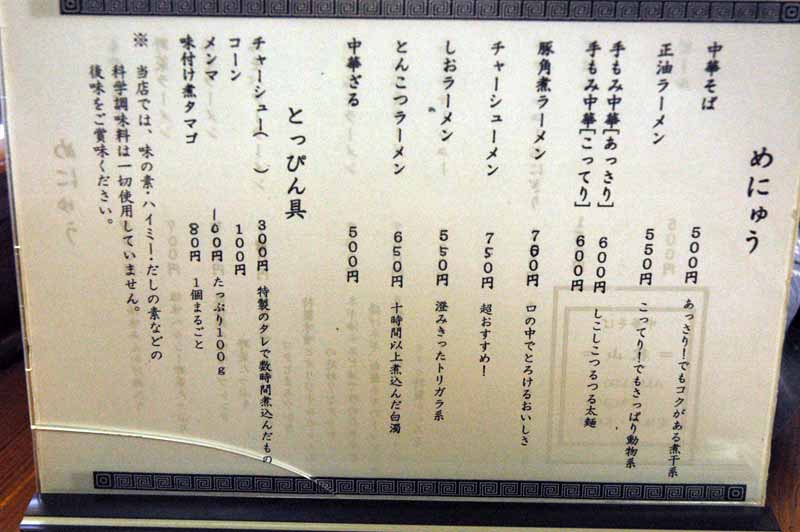 めにゅう
中華そば 500円 あっさり!でもコクがある煮干系
正油ラーメン 550円 こってり!でもさっぱり動物系
手もみ中華[あっさり] 600円 しこしこつるつる太麺
手もみ中華[こってり] 600円
豚角煮ラーメン 760円 口の中でとろけるおいしさ
チャーシューメン 750円 超おすすめ!
しおラーメン 550円 澄みきったトリガラ系
とんこつラーメン 650円 十時間以上煮込んだ白濁
中華ざる 500円
とっぴん具
チャーシュー( ) 300円 特製のタレで数時間煮込んだもの
コーン 100円
メンマ 100円 たっぷり100g
味付け煮タマゴ 80円 1個まるごと
※ 当店では、味の素・ハイミー・だしの素などの
科学調味料は一切使用していません。
後味をご賞味ください。